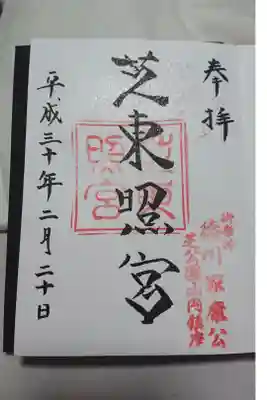 奉拝
芝東照宮
平成三十年二月二十日
徳川家康公
芝公園山内鎮座